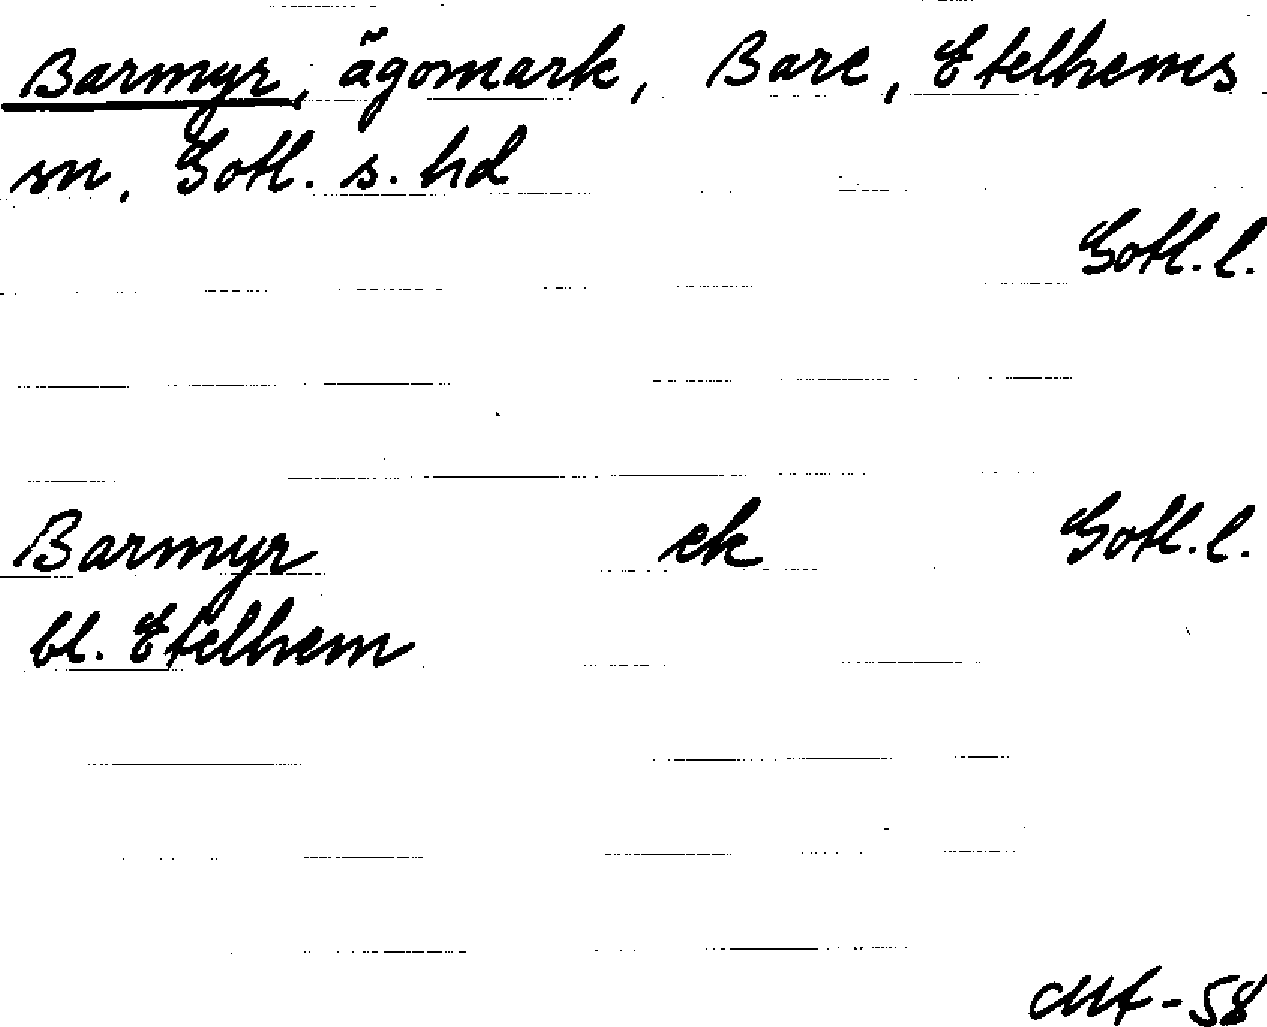 Barmyr, ägomark, Bare, Etelhems
sn, Gotl. s. hd
Gotl. l.
Barmyr ek Gotl. l.
bl. Etelhem
-58